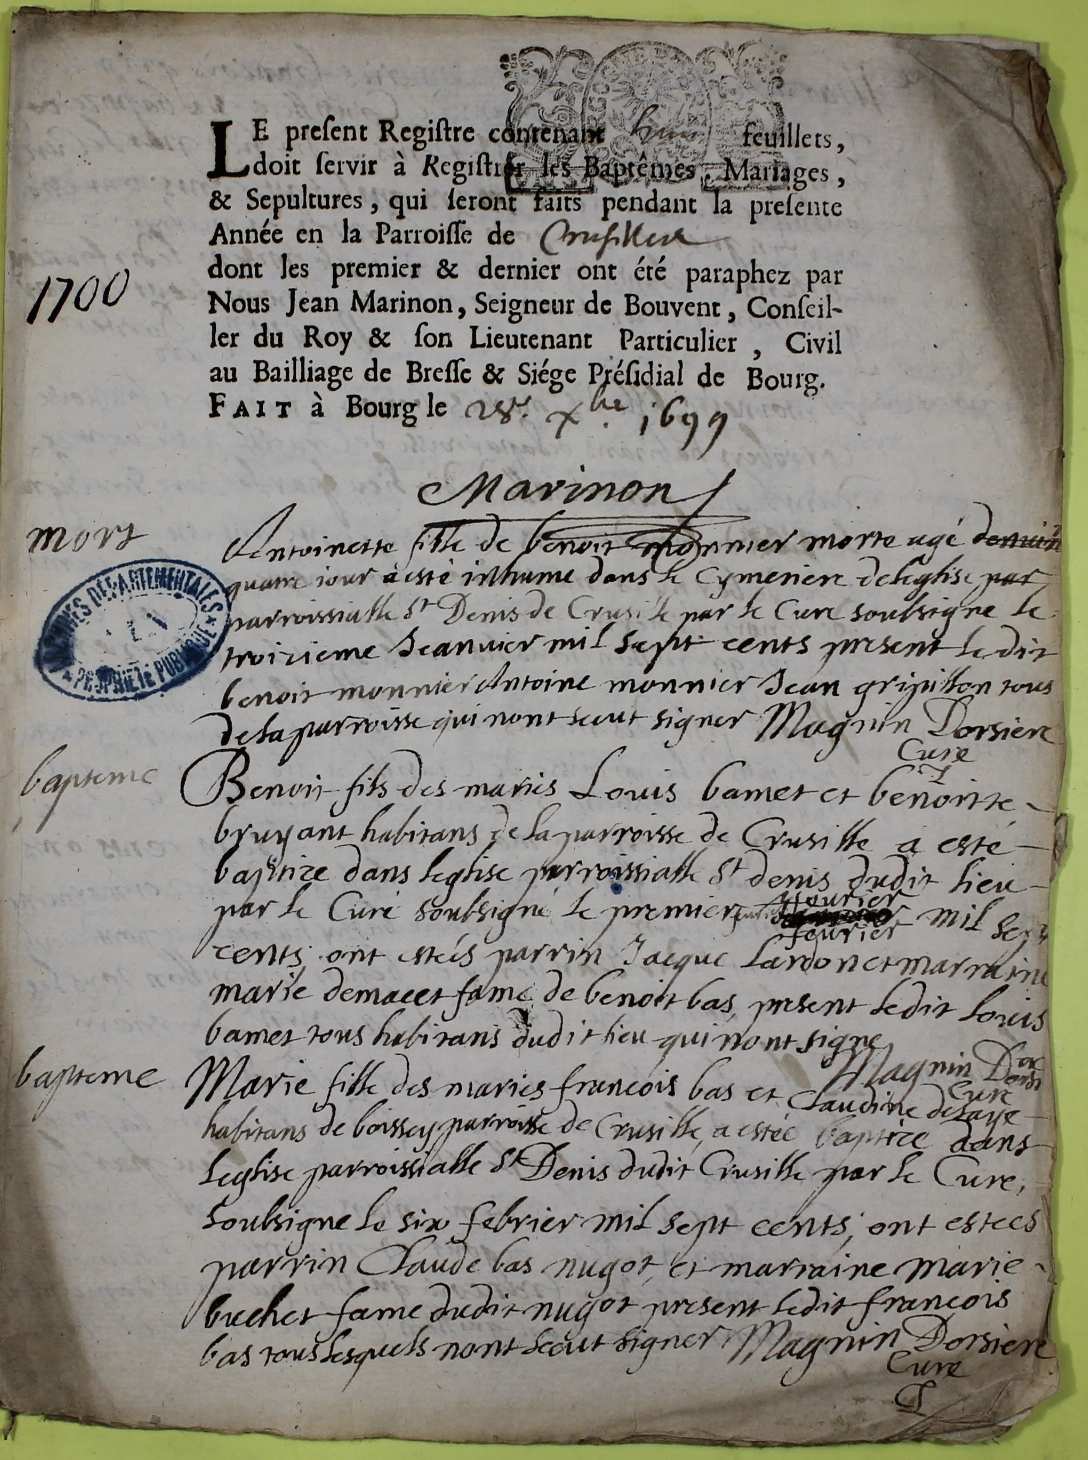 LE preſent Regiſtre contenant huit feuillets,
doit ſervir à Regiſtrer les Baptêmes, Mariages,
& Sepultures, qui ſeront faits pendant la preſente
Année en la Parroiſſe de Crusilleux
dont les premier & dernier ont été paraphez par
1700
Nous Jean Marinon, Seigneur de Bouvent, Conſeil-
ler du Roy & ſon Lieutenant Particulier, Civil
au Bailliage de Breſſe & Siége Préſidial de Bourg.
FAIT à Bourg le 28e. xbre. 1699
Marinon
mort
Antoinette fille de benoit monnier morte agé
quatre iour a esté inhume dans le Cymetiere de leglise par
parroissialle St Denis de Crusille par le Cure soubsigne le
troizieme Jeanvier mil sept cents present le dit
benoit monnier Antoine monnier Jean gripillon tous
de la parroisse qui nont sceut signer Magnin Dorsiere
Cure
ARCHIVES DÉPARTEMENTALES
AIN
PROPRIÉTÉ PUBLIQUE
bapteme
Benoit fils des maries Louis bamet et benoitte
bruyant habitans de la parroisse de Crusille a esté
baptize dans leglise parroissialle St denis dudit lieu
par le Cure soubsigné le premier feurier mil sept
feurier
cents ont estés parrin Jacque Lardon et marraine
marie demacet fame de benoit bas, present ledit Louis
bamet tous habitans dudit lieu qui nont signe
Magnin Dorsi
Cure
bapteme
Marie fille des maries francois bas et Claudine delaye
habitans de boissey parroisse de Crusille, a estée baptize dans
leglise parroissialle St Denis dudit Crusille par le Cure,
soubsigne le six febrier mil sept cents, ont estees
parrin Claude bas nugot, et marraine marie
buchet fame dudit nugot present ledit francois
bas tous lesquels nont sceut signer Magnin Dorsiere
Cure